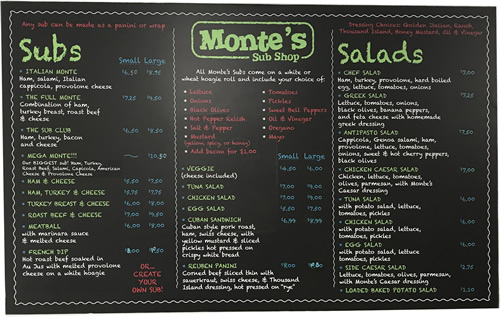 Any sub can be made as a panini or wrap
Subs
Small Large
• ITALIAN MONTE $6.50 $8.75
Ham, salami, Italian
cappicola, provolone cheese
• THE FULL MONTE $7.25 $9.50
Combination of ham,
turkey breast, roast beef
& cheese
• THE SUB CLUB $6.50 $8.50
Ham, turkey, bacon
and cheese
• MEGA MONTE!!!
Our BIGGEST sub! Ham, Turkey,
Roast Beef, Salami, Capicola, American
Cheese & Provolone Cheese
• HAM & CHEESE
• HAM, TURKEY & CHEESE
• TURKEY BREAST & CHEESE
• ROAST BEEF & CHEESE
• MEATBALL
with marinara sauce
& melted cheese
• FRENCH DIP
Hot roast beef soaked in
Au Jus with melted provolone
cheese on a white hoagie
OR...
CREATE
YOUR
OWN SUB!
Monte's
Sub Shop
All Monte's Subs come on a white or
wheat hoagie roll and include your choice of:
• Lettuce
• Onions
• Black Olives
• Hot Pepper Relish
• Salt & Pepper
• Mustard
(yellow, spicy, or honey)
• Add bacon for $1.00
• Tomatoes
• Pickles
• Sweet Bell Peppers
• Oil & Vinegar
• Oregano
• Mayo
Small Large
• VEGGIE
(cheese included)
• TUNA SALAD
• CHICKEN SALAD
• EGG SALAD
• CUBAN SANDWICH $6.99 $8.99
Cuban style pork roast,
ham, swiss cheese, with
yellow mustard & sliced
pickles hot pressed on
crispy white bread
• REUBEN PANINI
Corned beef sliced thin with
sauerkraut, swiss cheese, & Thousand
Island dressing, hot pressed on "rye"
Dressing Choices: Golden Italian, Ranch,
Thousand Island, Honey Mustard, Oil & Vinegar
Salads
• CHEF SALAD
Ham, turkey, provolone, hard boiled
egg, lettuce, tomatoes, onions
• GREEK SALAD
Lettuce, tomatoes, onions,
black olives, banana peppers,
and feta cheese with homemade
greek dressing
• ANTIPASTO SALAD
Cappicola, Genoa salami, ham,
provolone, lettuce, tomatoes,
onions, sweet & hot cherry peppers,
black olives
• CHICKEN CAESAR SALAD
Chicken, lettuce, tomatoes,
olives, parmesan, with Monte's
Caesar dressing
• TUNA SALAD
with potato salad, lettuce,
tomatoes, pickles
• CHICKEN SALAD
with potato salad, lettuce,
tomatoes, pickles
• EGG SALAD
with potato salad, lettuce
tomatoes, pickles
• SIDE CAESAR SALAD
Lettuce, tomatoes, olives, parmesan,
with Monte's Caesar dressing
• LOADED BAKED POTATO SALAD